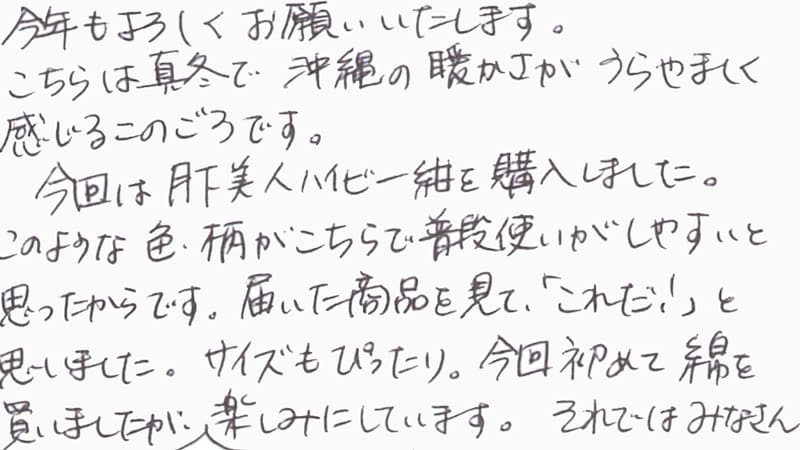 今年もよろしくお願いいたします。
こちらは真冬で 沖縄の暖かさが うらやましく
感じるこのごろです。
今回は月下美人ハイビー紺を購入しました。
このような色・柄がこちらで普段使いがしやすいと
思ったからです。届いた商品を見て、「これだ!」と
思いました。サイズもぴったり。今回初めて綿を
買いましたが、楽しみにしています。 それではみなさん